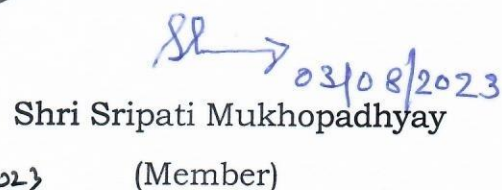 03/08/2023
Shri Sripati Mukhopadhyay
(Member)